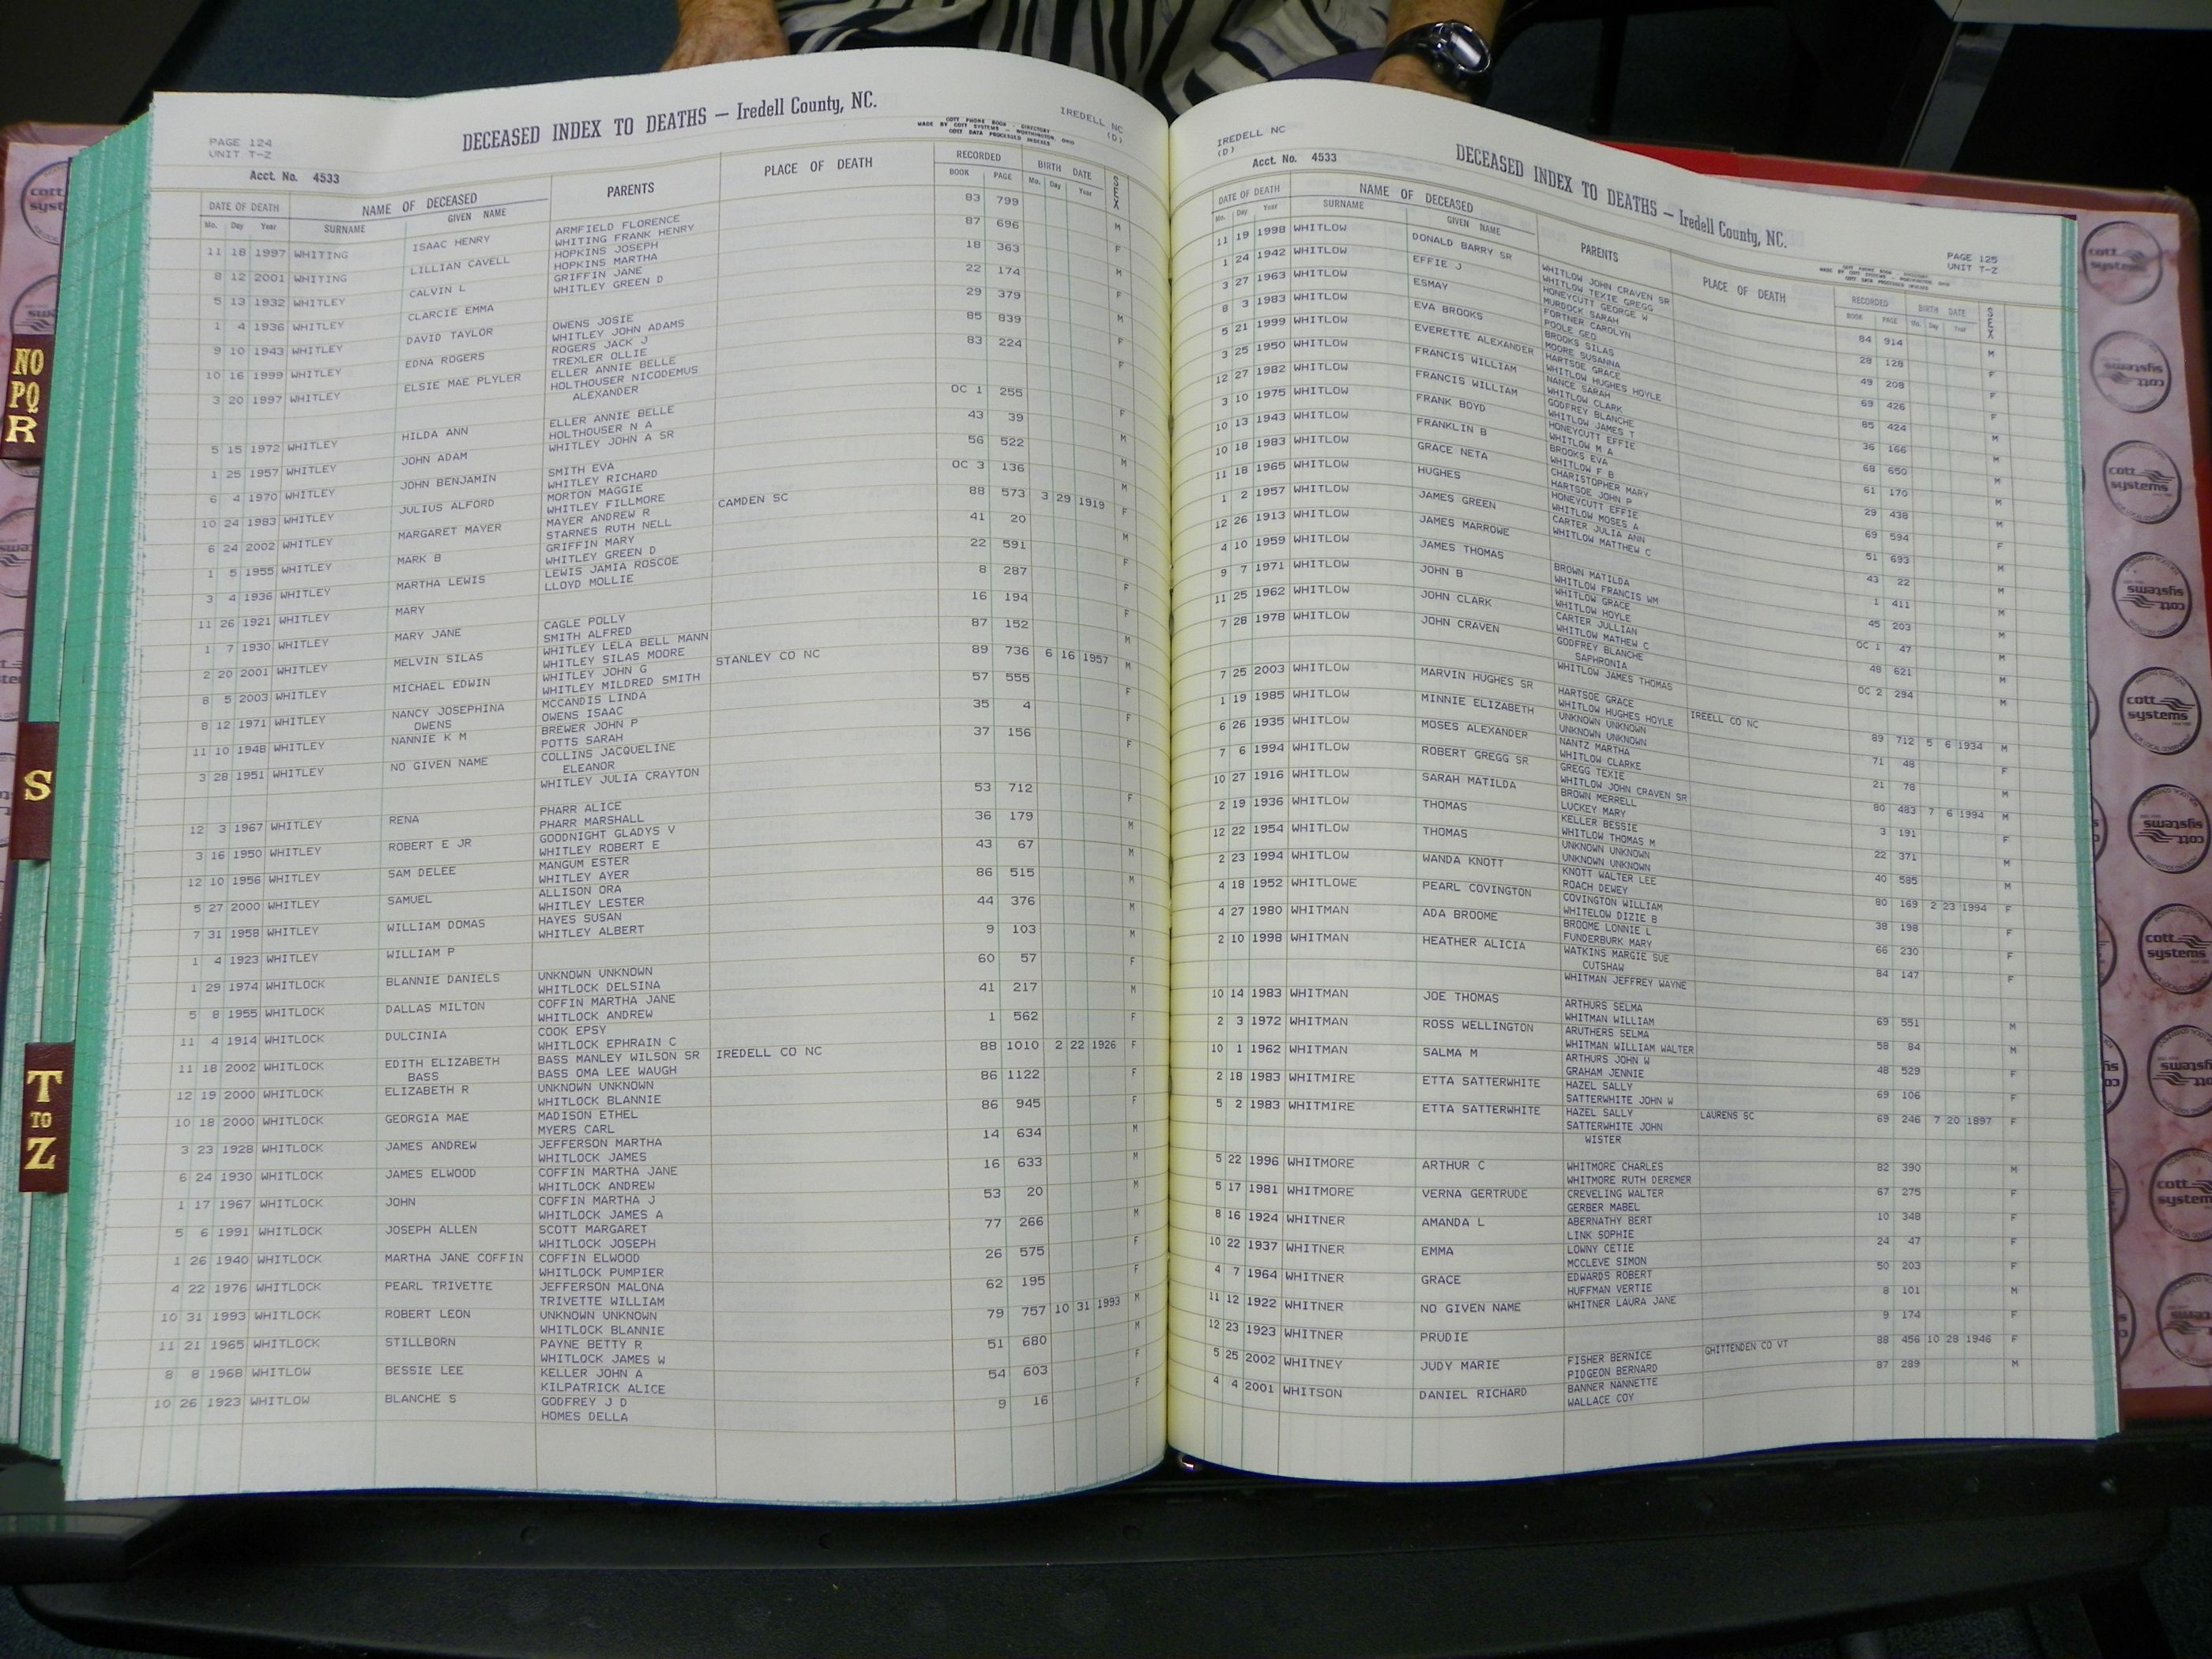 PAGE 124
UNIT T-Z
DECEASED INDEX TO DEATHS — Iredell County, NC.
COTT PHONE BOOK - DIRECTORY
MADE BY COTT SYSTEMS - WORTHINGTON, OHIO
COTT DATA PROCESSED INDEXES
IREDELL NC
(D)
Acct. No. 4533
DATE OF DEATH NAME OF DECEASED PARENTS PLACE OF DEATH RECORDED BIRTH DATE SEX
Mo. Day Year SURNAME GIVEN NAME BOOK PAGE Mo. Day Year
11 18 1997 WHITING ISAAC HENRY ARMFIELD FLORENCE 83 799 M
WHITING FRANK HENRY
8 12 2001 WHITING LILLIAN CAVELL HOPKINS JOSEPH 87 696 F
HOPKINS MARTHA
5 13 1932 WHITLEY CALVIN L GRIFFIN JANE 18 363 M
WHITLEY GREEN D
1 4 1936 WHITLEY CLARCIE EMMA 22 174 F
9 10 1943 WHITLEY DAVID TAYLOR OWENS JOSIE 29 379 M
WHITLEY JOHN ADAMS
10 16 1999 WHITLEY EDNA ROGERS ROGERS JACK J 85 839 F
TREXLER OLLIE
3 20 1997 WHITLEY ELSIE MAE PLYLER ELLER ANNIE BELLE 83 224 F
HOLTHOUSER NICODEMUS
ALEXANDER
5 15 1972 WHITLEY HILDA ANN ELLER ANNIE BELLE OC 1 255 F
HOLTHOUSER N A
1 25 1957 WHITLEY JOHN ADAM WHITLEY JOHN A SR 43 39 M
6 4 1970 WHITLEY JOHN BENJAMIN SMITH EVA 56 522 M
WHITLEY RICHARD
10 24 1983 WHITLEY JULIUS ALFORD MORTON MAGGIE OC 3 136 M
WHITLEY FILLMORE
6 24 2002 WHITLEY MARGARET MAYER MAYER ANDREW R CAMDEN SC 88 573 3 29 1919 F
STARNES RUTH NELL
1 5 1955 WHITLEY MARK B GRIFFIN MARY 41 20 M
WHITLEY GREEN D
3 4 1936 WHITLEY MARTHA LEWIS LEWIS JAMIA ROSCOE 22 591 F
LLOYD MOLLIE
11 26 1921 WHITLEY MARY 8 287 F
1 7 1930 WHITLEY MARY JANE CAGLE POLLY 16 194 F
SMITH ALFRED
2 20 2001 WHITLEY MELVIN SILAS WHITLEY LELA BELL MANN 87 152 M
WHITLEY SILAS MOORE
8 5 2003 WHITLEY MICHAEL EDWIN WHITLEY JOHN G STANLEY CO NC 89 736 6 16 1957 M
WHITLEY MILDRED SMITH
8 12 1971 WHITLEY NANCY JOSEPHINA MCCANDIS LINDA 57 555 F
OWENS OWENS ISAAC
11 10 1948 WHITLEY NANNIE K M BREWER JOHN P 35 4 F
POTTS SARAH
3 28 1951 WHITLEY NO GIVEN NAME COLLINS JACQUELINE 37 156 F
ELEANOR
WHITLEY JULIA CRAYTON
12 3 1967 WHITLEY RENA PHARR ALICE 53 712 F
PHARR MARSHALL
3 16 1950 WHITLEY ROBERT E JR GOODNIGHT GLADYS V 36 179 M
WHITLEY ROBERT E
12 10 1956 WHITLEY SAM DELEE MANGUM ESTER 43 67 M
WHITLEY AYER
5 27 2000 WHITLEY SAMUEL ALLISON ORA 86 515 M
WHITLEY LESTER
7 31 1958 WHITLEY WILLIAM DOMAS HAYES SUSAN 44 376 M
WHITLEY ALBERT
1 4 1923 WHITLEY WILLIAM P 9 103 M
1 29 1974 WHITLOCK BLANNIE DANIELS UNKNOWN UNKNOWN 60 57 F
WHITLOCK DELSINA
5 8 1955 WHITLOCK DALLAS MILTON COFFIN MARTHA JANE 41 217 M
WHITLOCK ANDREW
11 4 1914 WHITLOCK DULCINIA COOK EPSY 1 562 F
WHITLOCK EPHRAIN C
11 18 2002 WHITLOCK EDITH ELIZABETH BASS MANLEY WILSON SR IREDELL CO NC 88 1010 2 22 1926 F
BASS BASS OMA LEE WAUGH
12 19 2000 WHITLOCK ELIZABETH R UNKNOWN UNKNOWN 86 1122 F
WHITLOCK BLANNIE
10 18 2000 WHITLOCK GEORGIA MAE MADISON ETHEL 86 945 F
MYERS CARL
3 23 1928 WHITLOCK JAMES ANDREW JEFFERSON MARTHA 14 634 M
WHITLOCK JAMES
6 24 1930 WHITLOCK JAMES ELWOOD COFFIN MARTHA JANE 16 633 M
WHITLOCK ANDREW
1 17 1967 WHITLOCK JOHN COFFIN MARTHA J 53 20 M
WHITLOCK JAMES A
5 6 1991 WHITLOCK JOSEPH ALLEN SCOTT MARGARET 77 266 M
WHITLOCK JOSEPH
1 26 1940 WHITLOCK MARTHA JANE COFFIN COFFIN ELWOOD 26 575 F
WHITLOCK PUMPIER
4 22 1976 WHITLOCK PEARL TRIVETTE JEFFERSON MALONA 62 195 F
TRIVETTE WILLIAM
10 31 1993 WHITLOCK ROBERT LEON UNKNOWN UNKNOWN 79 757 10 31 1993 M
WHITLOCK BLANNIE
11 21 1965 WHITLOCK STILLBORN PAYNE BETTY R 51 680 M
WHITLOCK JAMES W
8 8 1968 WHITLOW BESSIE LEE KELLER JOHN A 54 603 F
KILPATRICK ALICE
10 26 1923 WHITLOW BLANCHE S GODFREY J D 9 16 F
HOMES DELLA
IREDELL NC
(D)
DECEASED INDEX TO DEATHS — Iredell County, NC.
PAGE 125
UNIT T-Z
Acct. No. 4533
DATE OF DEATH NAME OF DECEASED PARENTS PLACE OF DEATH RECORDED BIRTH DATE SEX
Mo. Day Year SURNAME GIVEN NAME BOOK PAGE Mo. Day Year
11 19 1998 WHITLOW DONALD BARRY SR WHITLOW JOHN CRAVEN SR 84 914 M
WHITLOW TEXIE GREGG
1 24 1942 WHITLOW EFFIE J HONEYCUTT GEORGE W 28 128 F
MURDOCK SARAH
3 27 1963 WHITLOW ESMAY FORTNER CAROLYN 49 209 F
POOLE GEO
8 3 1983 WHITLOW EVA BROOKS BROOKS SILAS 69 426 F
MOORE SUSANNA
5 21 1999 WHITLOW EVERETTE ALEXANDER HARTSOE GRACE 85 424 M
WHITLOW HUGHES HOYLE
3 25 1950 WHITLOW FRANCIS WILLIAM NANCE SARAH 36 166 M
WHITLOW CLARK
12 27 1982 WHITLOW FRANCIS WILLIAM GODFREY BLANCHE 68 650 M
WHITLOW JAMES T
3 10 1975 WHITLOW FRANK BOYD HONEYCUTT EFFIE 61 170 M
WHITLOW M A
10 13 1943 WHITLOW FRANKLIN B BROOKS EVA 29 438 M
WHITLOW F B
10 18 1983 WHITLOW GRACE NETA CHARISTOPHER MARY 69 594 F
HARTSOE JOHN P
11 18 1965 WHITLOW HUGHES HONEYCUTT EFFIE 51 693 M
WHITLOW MOSES A
1 2 1957 WHITLOW JAMES GREEN CARTER JULIA ANN 43 22 M
WHITLOW MATTHEW C
12 26 1913 WHITLOW JAMES MARROWE 1 411 M
4 10 1959 WHITLOW JAMES THOMAS BROWN MATILDA 45 203 M
WHITLOW FRANCIS WM
9 7 1971 WHITLOW JOHN B WHITLOW GRACE OC 1 47 M
WHITLOW HOYLE
11 25 1962 WHITLOW JOHN CLARK CARTER JULLIAN 48 621 M
WHITLOW MATHEW C
7 28 1978 WHITLOW JOHN CRAVEN GODFREY BLANCHE OC 2 294 M
SAPHRONIA
WHITLOW JAMES THOMAS
7 25 2003 WHITLOW MARVIN HUGHES SR HARTSOE GRACE IREELL CO NC 89 712 5 6 1934 M
WHITLOW HUGHES HOYLE
1 19 1985 WHITLOW MINNIE ELIZABETH UNKNOWN UNKNOWN 71 48 F
UNKNOWN UNKNOWN
6 26 1935 WHITLOW MOSES ALEXANDER NANTZ MARTHA 21 78 M
WHITLOW CLARKE
7 6 1994 WHITLOW ROBERT GREGG SR GREGG TEXIE 80 483 7 6 1994 M
WHITLOW JOHN CRAVEN SR
10 27 1916 WHITLOW SARAH MATILDA BROWN MERRELL 3 191 F
LUCKEY MARY
2 19 1936 WHITLOW THOMAS KELLER BESSIE 22 371 M
WHITLOW THOMAS M
12 22 1954 WHITLOW THOMAS UNKNOWN UNKNOWN 40 585 M
UNKNOWN UNKNOWN
2 23 1994 WHITLOW WANDA KNOTT KNOTT WALTER LEE 80 169 2 23 1994 F
ROACH DEWEY
4 18 1952 WHITLOWE PEARL COVINGTON COVINGTON WILLIAM 38 198 F
WHITELOW DIZIE B
4 27 1980 WHITMAN ADA BROOME BROOME LONNIE L 66 230 F
FUNDERBURK MARY
2 10 1998 WHITMAN HEATHER ALICIA WATKINS MARGIE SUE 84 147 F
CUTSHAW
WHITMAN JEFFREY WAYNE
10 14 1983 WHITMAN JOE THOMAS ARTHURS SELMA 69 551 M
WHITMAN WILLIAM
2 3 1972 WHITMAN ROSS WELLINGTON ARUTHERS SELMA 58 84 M
WHITMAN WILLIAM WALTER
10 1 1962 WHITMAN SALMA M ARTHURS JOHN W 48 529 F
GRAHAM JENNIE
2 18 1983 WHITMIRE ETTA SATTERWHITE HAZEL SALLY 69 106 F
SATTERWHITE JOHN W
5 2 1983 WHITMIRE ETTA SATTERWHITE HAZEL SALLY LAURENS SC 69 246 7 20 1897 F
SATTERWHITE JOHN
WISTER
5 22 1996 WHITMORE ARTHUR C WHITMORE CHARLES 82 390 M
WHITMORE RUTH DEREMER
5 17 1981 WHITMORE VERNA GERTRUDE CREVELING WALTER 67 275 F
GERBER MABEL
8 16 1924 WHITNER AMANDA L ABERNATHY BERT 10 348 F
LINK SOPHIE
10 22 1937 WHITNER EMMA LOWNY CETIE 24 47 F
MCCLEVE SIMON
4 7 1964 WHITNER GRACE EDWARDS ROBERT 50 203 F
HUFFMAN VERTIE
11 12 1922 WHITNER NO GIVEN NAME WHITNER LAURA JANE 8 101 M
12 23 1923 WHITNER PRUDIE 9 174 F
5 25 2002 WHITNEY JUDY MARIE FISHER BERNICE GHITTENDEN CO VT 88 456 10 28 1946 F
PIDGEON BERNARD
4 4 2001 WHITSON DANIEL RICHARD BANNER NANNETTE 87 289 M
WALLACE COY
NO
PQ
R
S
T
TO
Z
cott
systems